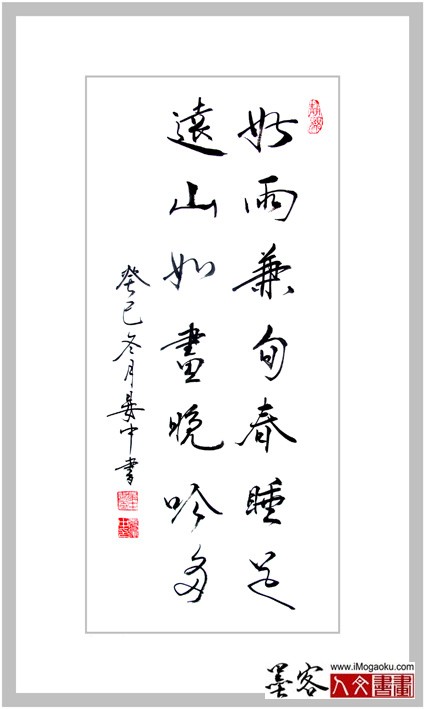 好雨兼旬春睡足
遠山如畫晚吟多
癸巳冬月晏中書
墨客
www.iMogaoku.com
人文書畫